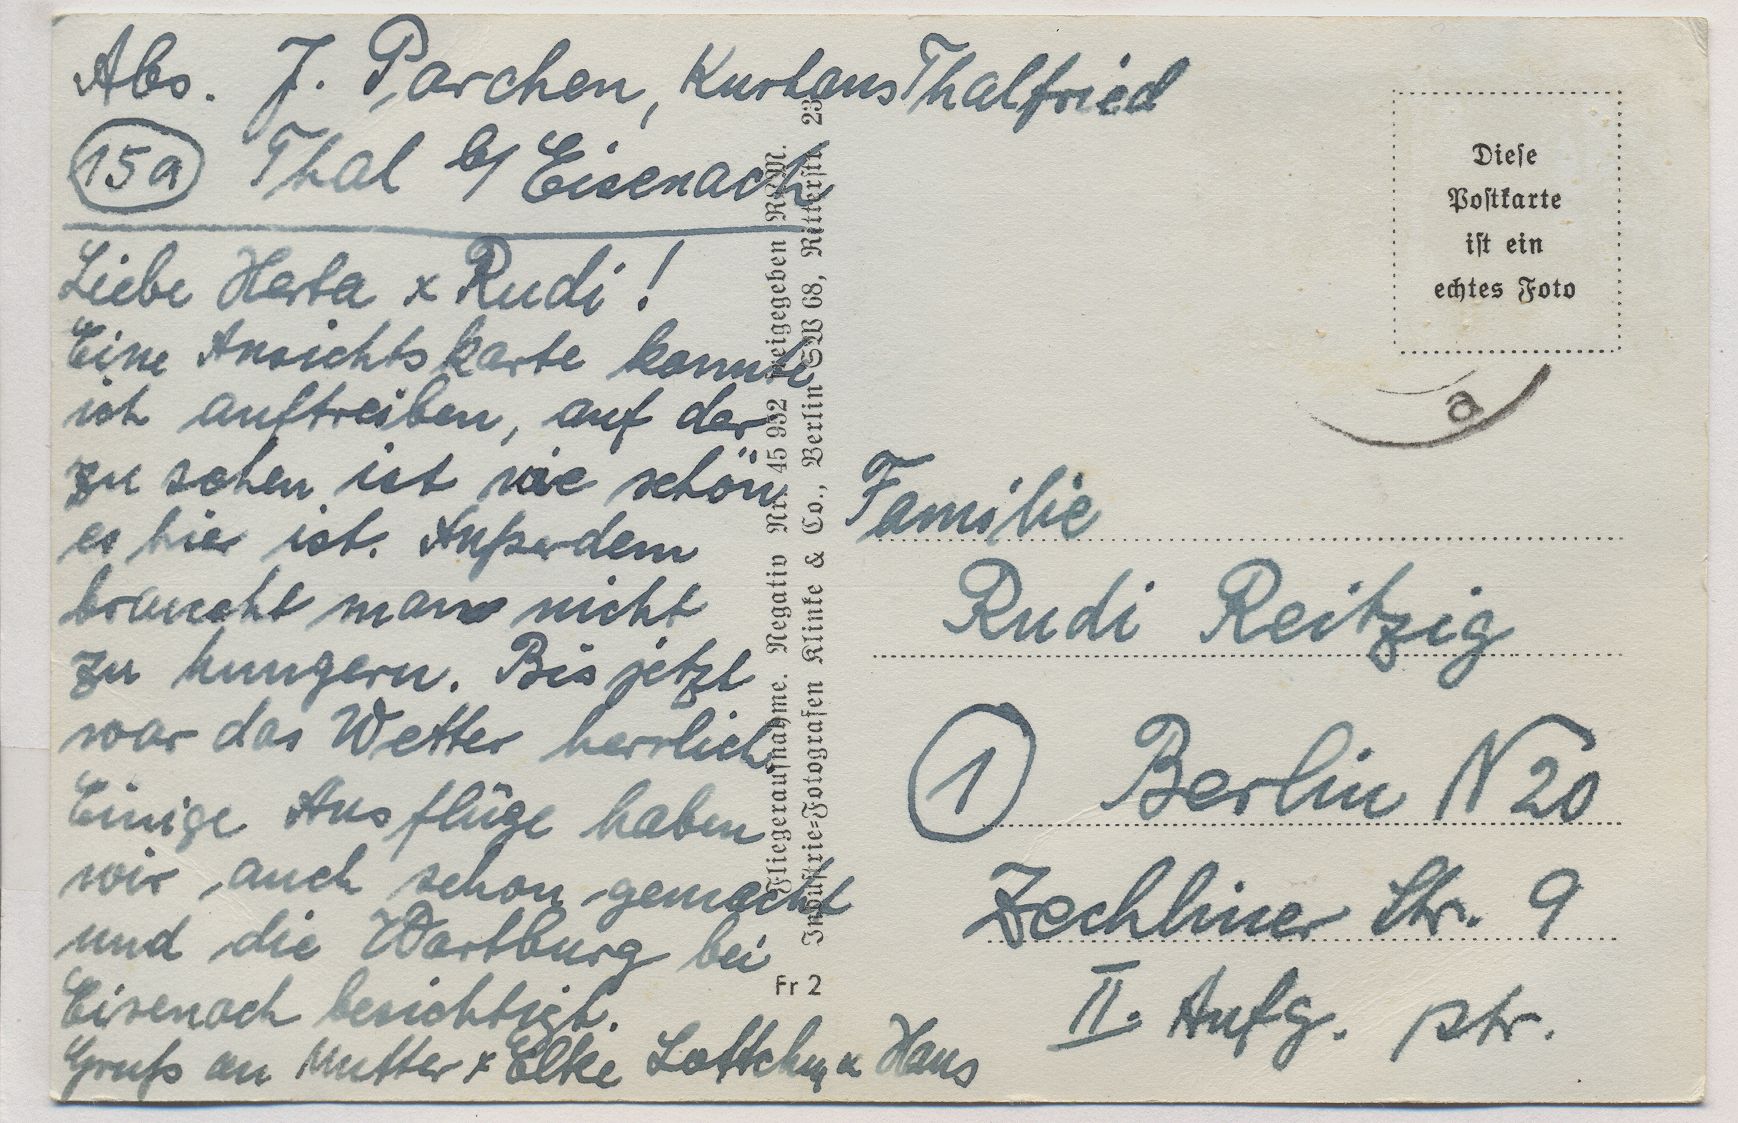 Abs. J. Parchen, Kurhaus Thalfried
15a Thal b/ Eisenach
Liebe Herta x Rudi!
Eine Ansichtskarte konnte
ich auftreiben, auf der
zu sehen ist wie schön
es hier ist. Außerdem
braucht man nicht
zu hungern. Bis jetzt
war das Wetter herrlich
Einige Ausflüge haben
wir auch schon gemacht
und die Wartburg bei
Eisenach besichtigt.
Gruß an Mutter x Elke Lottchen x Hans
Fliegeraufnahme. Negativ Nr. 45 952 freigegeben RLM.
Industrie=Fotografen Klinke & Co., Berlin SW 68, Ritterstr. 23
Fr 2
Diese
Postkarte
ist ein
echtes Foto
a
Familie
Rudi Reitzig
1 Berlin N 20
Zechliner Str. 9
II. Aufg. ptr.